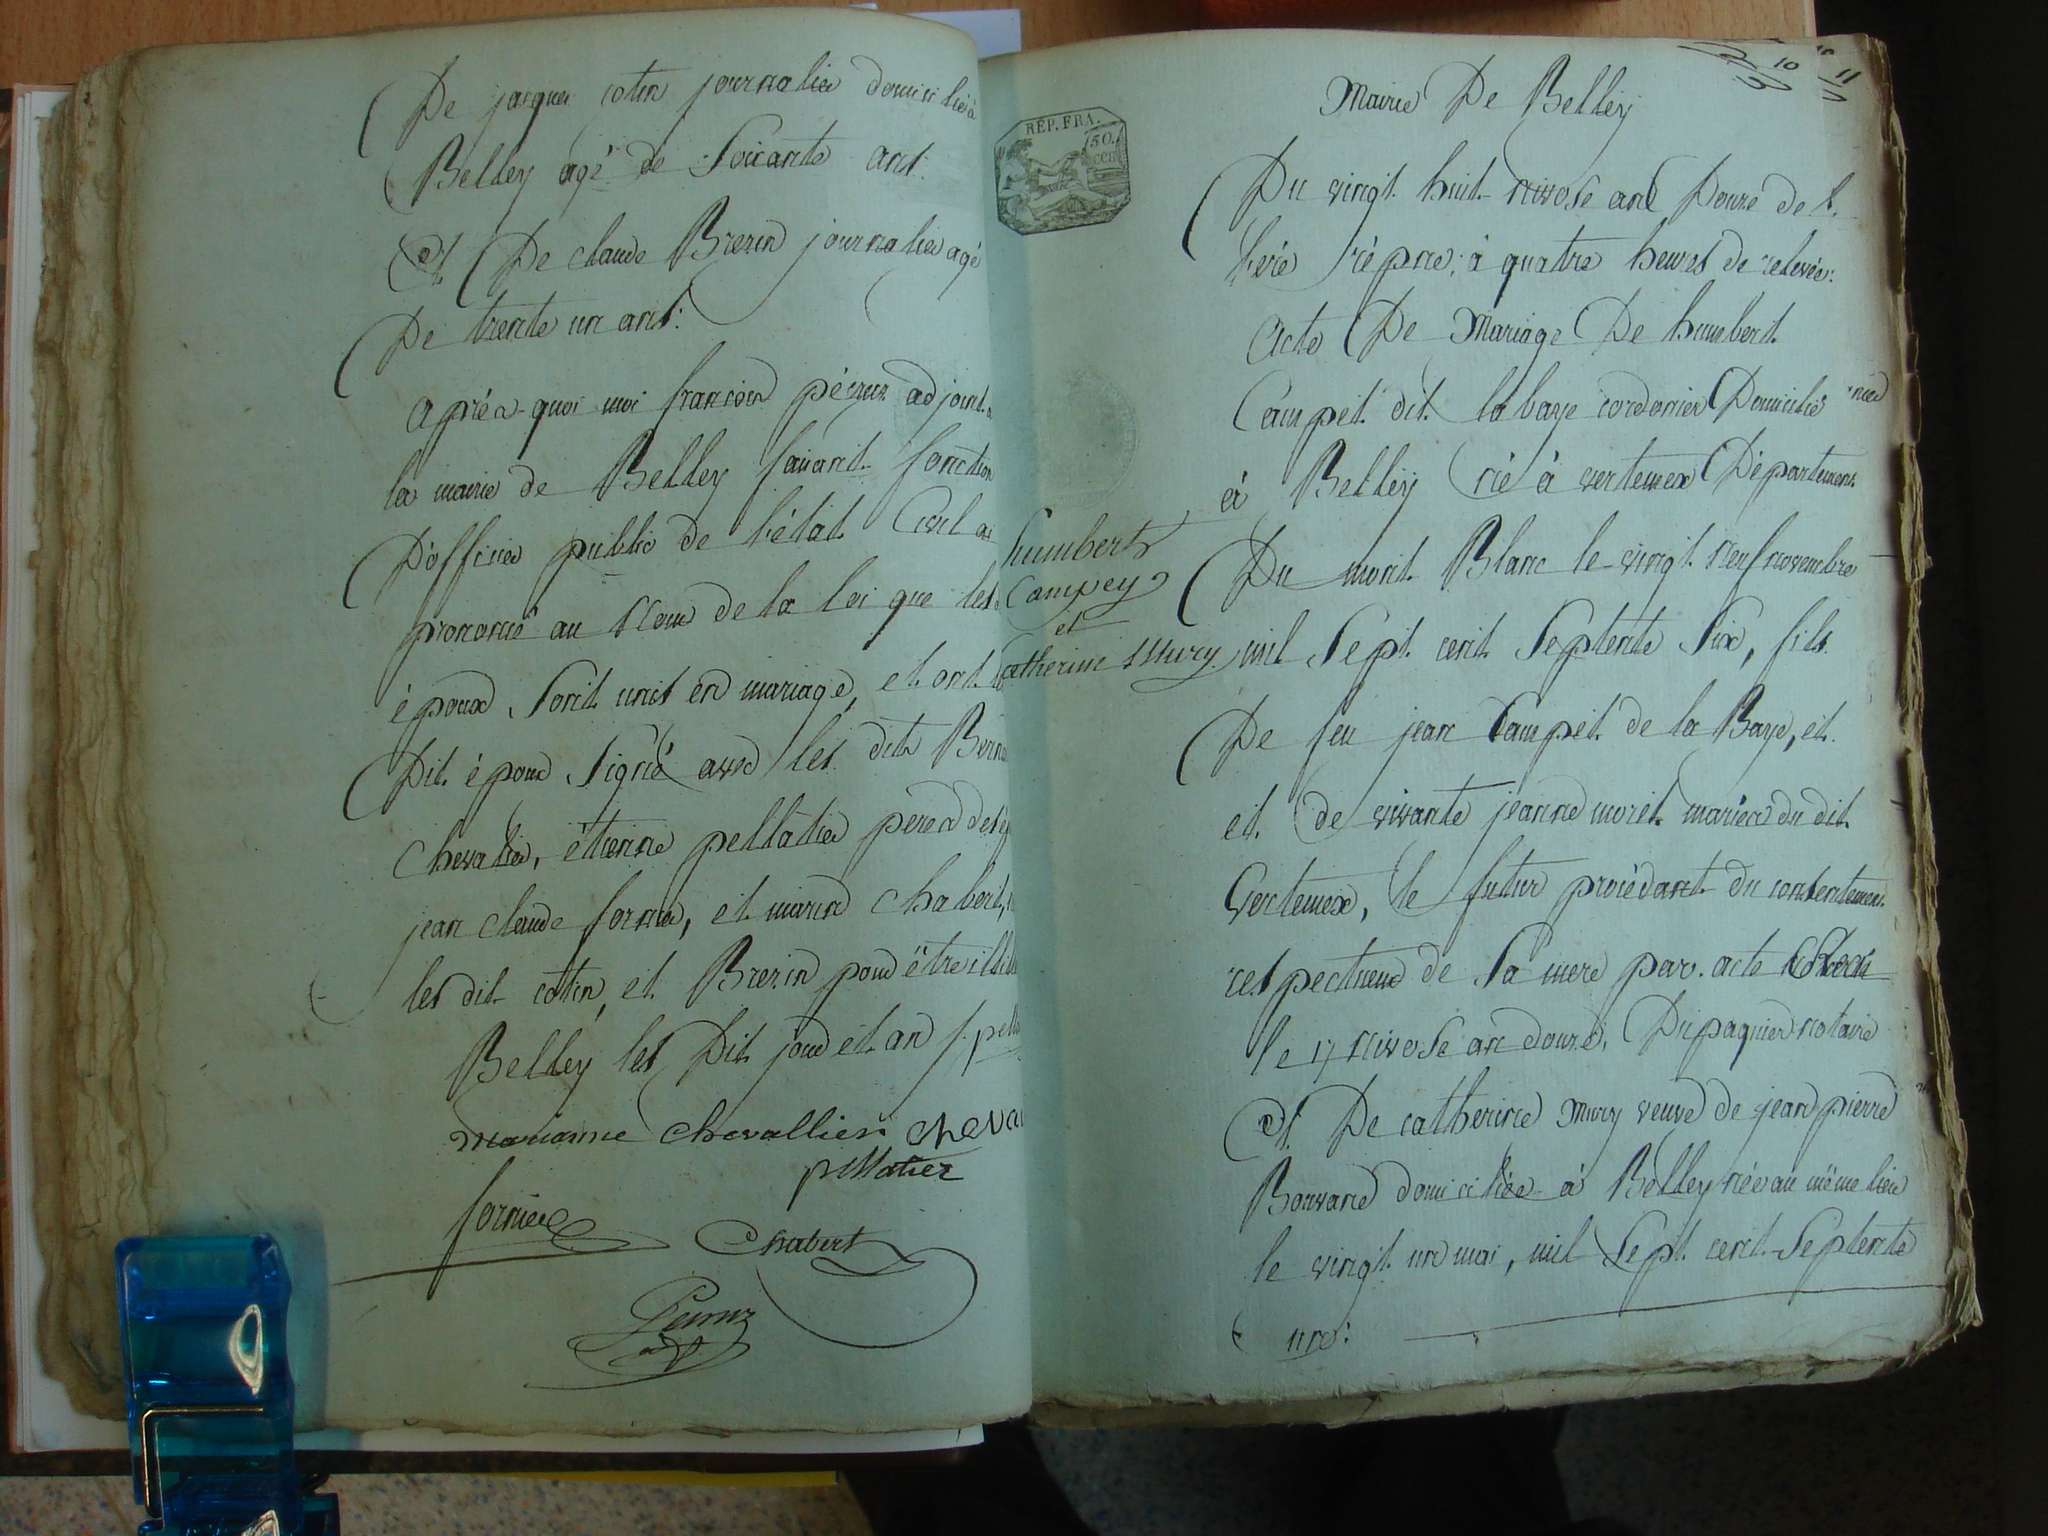 De jacques cotin journalier domicilié à
Belley agé de Soixante ans.
Et De claude Brezin journalier agé
De trente un ans:
après quoi moi françois péruz adjoint
la mairie de Belley faisant fonction
D'officier public de l'état Civil ai
prononcé au Nom de la loi que les
époux Sont unis en mariage, et ont
Dit époux Signé avec les dits
Chevalier, étienne pellatier peres des
jean claude fornier, et marin chabert,
les dit cotin, et Brezin pour être
Belley les Dit jour et an
marianne chevallier
pellatier
fornier
Chabert
Peruz
adj.
Mairie De Belley
REP. FRA.
50.
CEN
10
11
Du vingt huit nivose an Douze de l.
l'ére répne; à quatre heures de relevée.
Acte De Mariage De humbert
Campet dit labaye cordonier Domicilié
à Belley né à vertemex Département
Du mont Blanc le vingt neuf novembre
humbert
Campey
et
Catherine Mury
mil Sept cent Septente Six, fils
De feu jean Campet de la Baye, et
et de vivante jeanne moret mariés du dit
Vertemex, le futur procédant du contentement
respectueux de Sa mere par acte
le 17 Nivose an douze, Dupaquier notaire
Et De catherine Mury veuve de jean pierre
Bouvard domiciliée à Belley née au même lieu
le vingt un mai, mil Sept cent Septente
une: